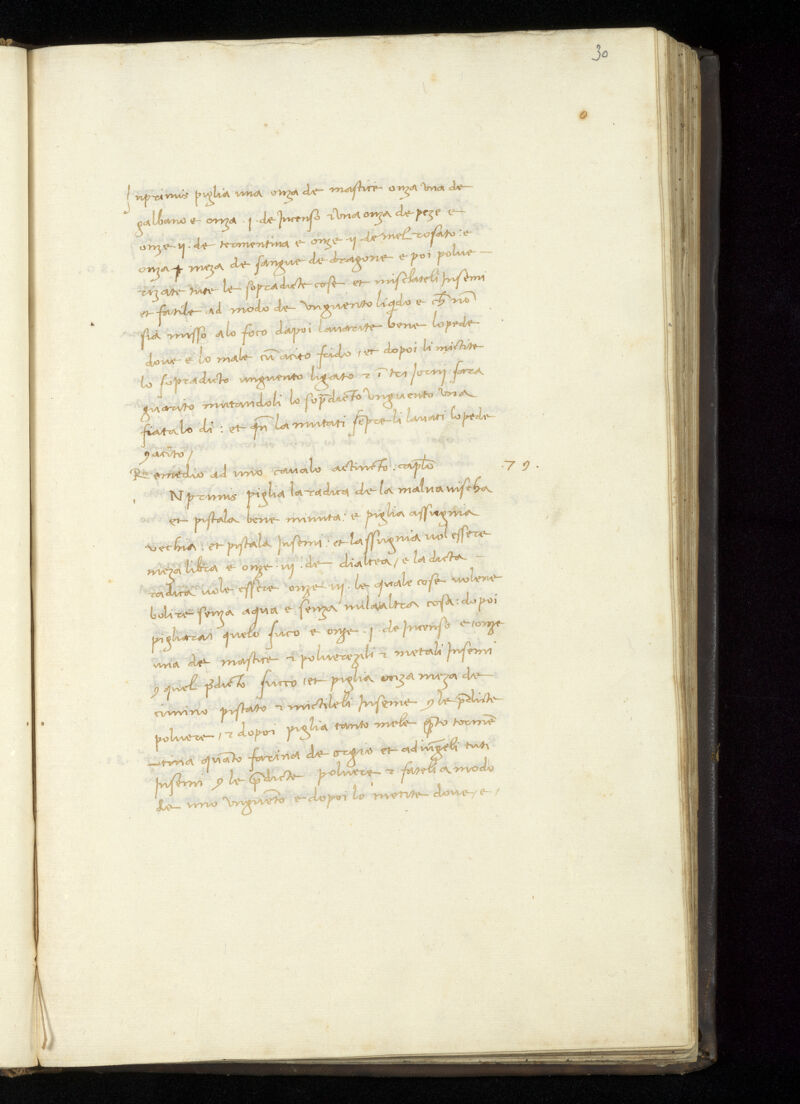 30
Inprimis piglia una onza de mastice onza una de
galbano e onza .I. de Incenso & una onza de peze e
onze .II. de termentina e onze .II. de mel rosato: e
onza meza de sangue de dragone e poi polue-
rizate tute le sopradicte cose et misclateli Insemi
et fatile ad modo de unguento liqido e ch̄ nō
sia misso alo foco dapoi lauarite bene lo pede
doue e lo male cū acito frido, et dopoi li mictite
lo sopradicto unguento ligato & ī tri Jorni sara
guarito mutandoli lo sop̄dicto unguento una
fiata lo di: et qn̄ la mutati sēpre li lauati lo pede
9 acito/
Remedio ad uno caualo actincto. capł̄o .79.
INprimis piglia la radica de la maluauischa
et pistala bene minuta: e piglia assugnia
uechia: et pistala Insemi: et la ssugnia uol essere
meza libra e onze .III. de dialtea, e la dicta
radica uole essere onze .III. le quale cose uolene
bolire senza aqua e senza nulaaltra cosa: dopoi
pigliarai quelo suco e onze .I. de Incenso e onze
una de mastice & poluerezili & metali Insemi
9 quel p̄dicto succo, et piglia onza meza de
cimino pistato & mictileli Inseme 9 le p̄dicte
poluere, & dopoi piglia tanto mele q̄to tormē
-tina quāto farina de orgio et adiūgeli tuti
Insemi 9 le p̄dicte poluere & fateli a modo
de uno unguēto e dopoi lo metite doue, e,